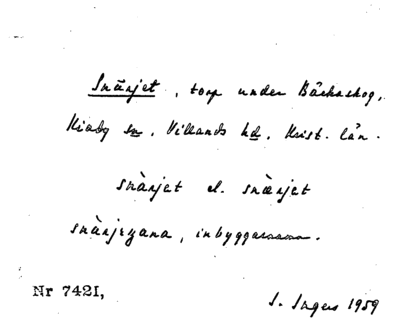 Snärjet, torp under Bäckaskog,
Kiaby sn, Villands hd, Krist. län.
snärjet el. snärjet
snärjeyana, inbyggarnamn.
Nr 7421, S. Ingers 1959